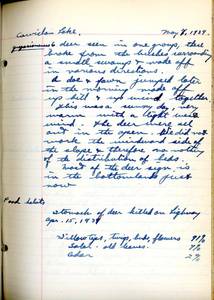 Cowichan Lake, May 9, 1939.
6 deer seen in one group, these
broke from the hillside surrounding
a small swamp & made off
in various directions.
A doe & fawn jumped later
in the morning made off
up hill & up wind together.
This was a sunny day, very
warm with a light west
wind. The deer were all
out in the open. We did not
work the windward side of
the slope & therefore no nothing
of the distribution of beds.
Most of the deer sign is
in the bottomlands just
now
Food habits
Stomach of deer killed on highway
Apr. 15, 1939
Willow tips, twigs, buds, flowers 91%
Salal. old leaves. 7%
Cedar 2%